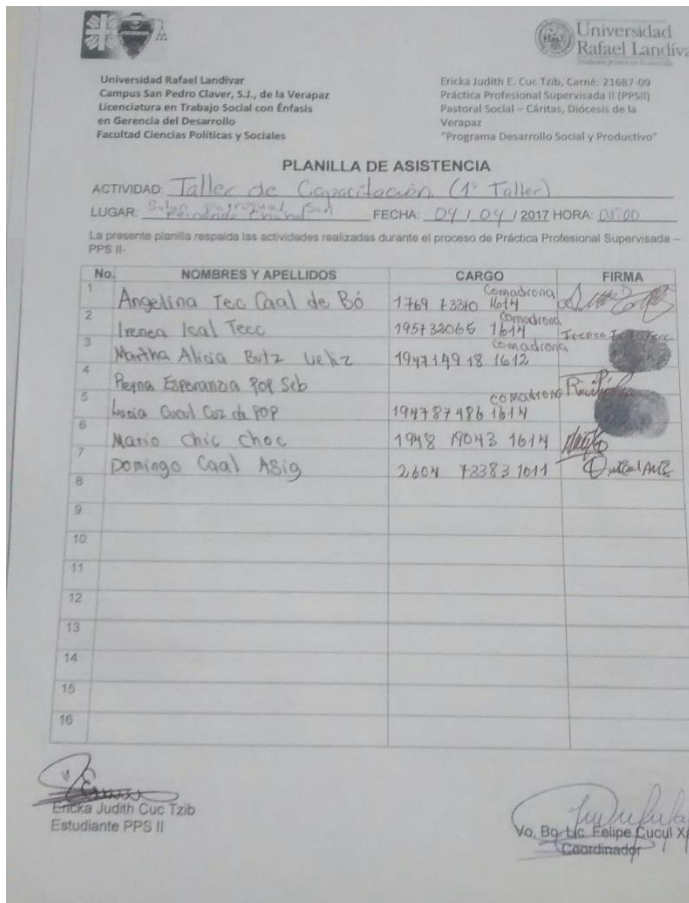 Universidad
Rafael Landíva
Universidad Rafael Landívar
Campus San Pedro Claver, S.J., de la Verapaz
Licenciatura en Trabajo Social con Énfasis
en Gerencia del Desarrollo
Facultad Ciencias Políticas y Sociales
Ericka Judith E. Cuc Tzib, Carné: 21687-09
Práctica Profesional Supervisada II (PPSII)
Pastoral Social – Cáritas, Diócesis de la
Verapaz
"Programa Desarrollo Social y Productivo"
PLANILLA DE ASISTENCIA
ACTIVIDAD: Taller de Capacitación (1° Taller)
LUGAR: Salon Parroquial San FECHA: 04 / 04 / 2017 HORA: 08:00
La presente planilla respalda las actividades realizadas durante el proceso de Práctica Profesional Supervisada –
PPS II-
No. NOMBRES Y APELLIDOS CARGO FIRMA
1 Angelina Tec Caal de Bó 1769 73370 1614 Comadrona
2 Irenea Ical Tecc 195732065 1614 Comadrona
3 Martha Alicia Butz Veliz 194714918 1612 Comadrona
4 Reyna Esperanza Pop Seb
5 Lucia Caal Coz de POP 194787486 1614 comadrona
6 Mario Chic Choc 1948 19043 1614
7 Domingo Caal ASig 2604 73383 1611
8
9
10
11
12
13
14
15
16
Ericka Judith Cuc Tzib
Estudiante PPS II
Vo. Bo. Lic. Felipe Cucul X
Coordinador